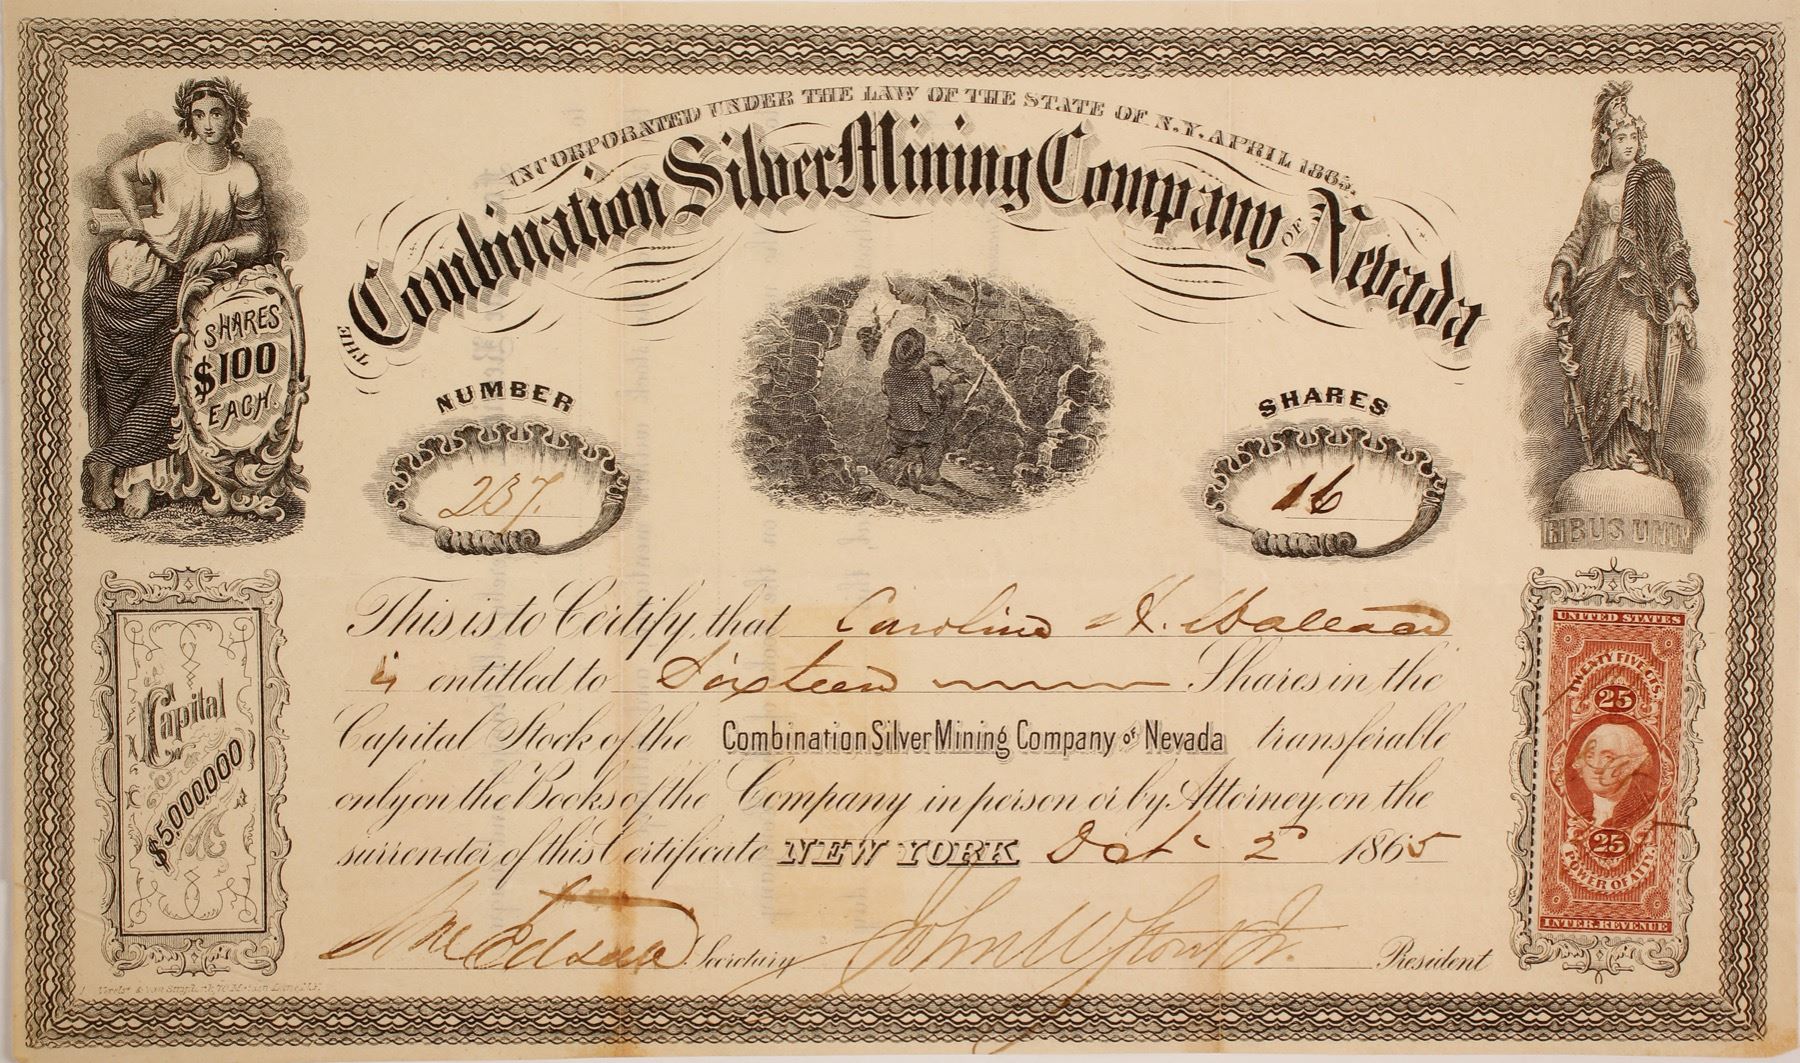 INCORPORATED UNDER THE LAW OF THE STATE OF N.Y. APRIL 1865.
THE Combination Silver Mining Company OF Nevada
SHARES
$100
EACH.
NUMBER
237.
SHARES
16
RIBUS UNUM
This is to Certify, that Caroline H. Wallace
is entitled to Sixteen Shares in the
Capital Stock of the Combination Silver Mining Company of Nevada transferable
only on the Books of the Company in person or by Attorney, on the
surrender of this Certificate NEW YORK Oct 2d 1865
Secretary
John W President
Capital
$5,000,000
UNITED STATES
TWENTY FIVE CTS.
25
25
POWER OF AT'Y.
INTER. REVENUE
70 Maiden Lane, N.Y.